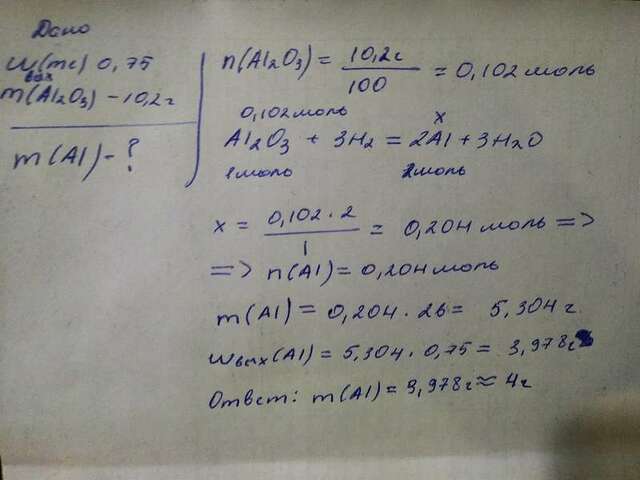 Дано
W(те) 0,75
вых
m(Al2O3) - 10,2г
m(Al) - ?
n(Al2O3) = 10,2г / 100 = 0,102 моль
0,102 моль x
Al2O3 + 3H2 = 2Al + 3H2O
1 моль 2 моль
x = 0,102 · 2 / 1 = 0,204 моль =>
=> n(Al) = 0,204 моль
m(Al) = 0,204 · 26 = 5,304 г.
Wвых(Al) = 5,304 · 0,75 = 3,978г
Ответ: m(Al) = 3,978г ≈ 4г